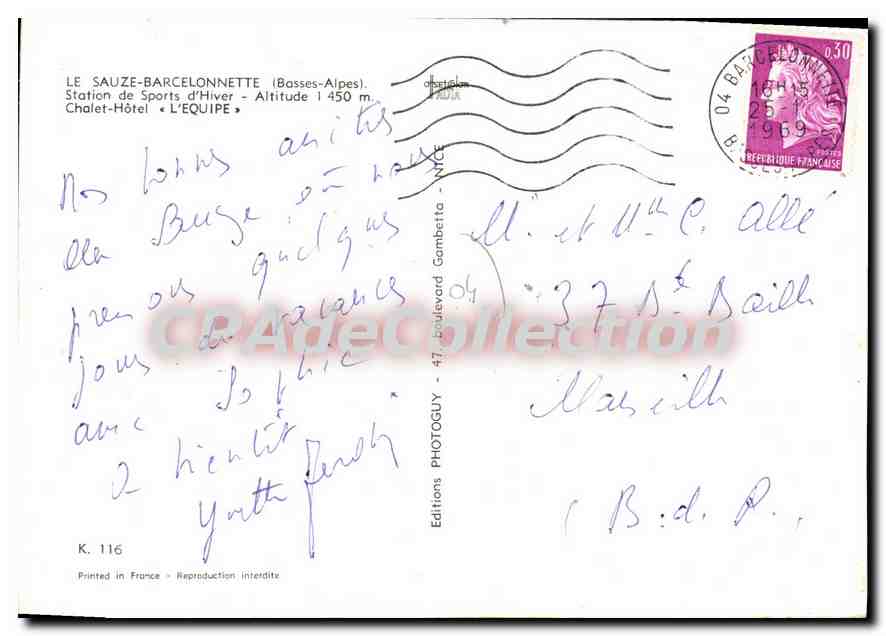 LE SAUZE-BARCELONNETTE (Basses-Alpes).
Station de Sports d'Hiver - Altitude 1 450 m.
Chalet-Hôtel « L'EQUIPE »
Nos bonnes amitiés
du Sauze où nous
prenons quelques
jours de vacances
avec Sophie
A bientôt
K. 116
Printed in France - Reproduction interdite
Editions PHOTOGUY - 47, boulevard Gambetta - NICE
04 BARCELONNETTE
16H15
25-1
1969
0,30
POSTES
REPUBLIQUE FRANÇAISE
et C. Allé
04
37 Bd Baille
Marseille
(B. d. R.
CPAdeCollection